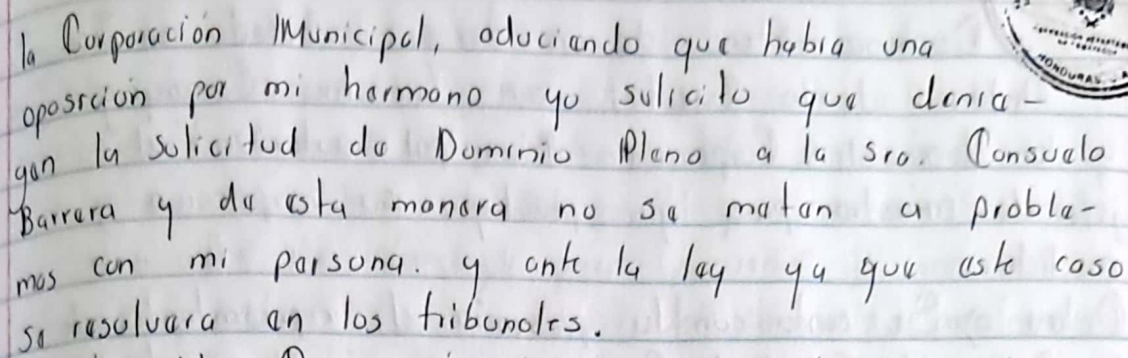 la Corporación Municipal, aduciendo que habia una
oposicion por mi hermano yo solicito que denie-
gan la solicitud de Dominio Pleno a la sra. Consuelo
Barrera y de esta manera no se metan a proble-
mas con mi persona. y ante la ley ya que este caso
se resolvera en los tribunales.
HONDURAS